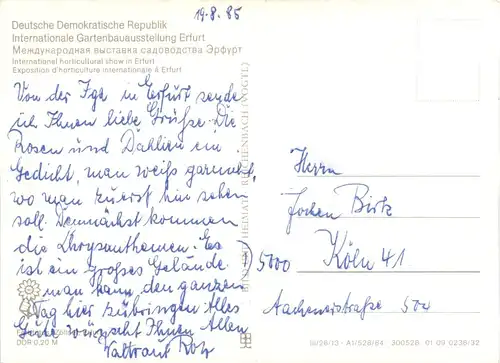 14.8.85
Deutsche Demokratische Republik
Internationale Gartenbauausstellung Erfurt
Международная выставка садоводства Эрфурт
International horticultural show in Erfurt
Exposition d'horticulture internationale à Erfurt
Von der Iga in Erfurt sende
ich Ihnen liebe Grüße. Die
Rosen und Dahlien im
Gedicht, man weiß garnicht,
wo man zuerst hin sehen
soll. Demnächst kommen
die Chrysanthemen. Es
ist ein großes Gelände
man kann den ganzen
Tag hier zubringen Alles
Gute wünscht Ihnen Allen
Valtraut
DDR 0,20 M
BILD UND HEIMAT REICHENBACH (VOGTL)
Herrn
Jochen Birk
5000 Köln 41
Aachenerstraße 504
A1/528/84 300528 01 09 0236/32